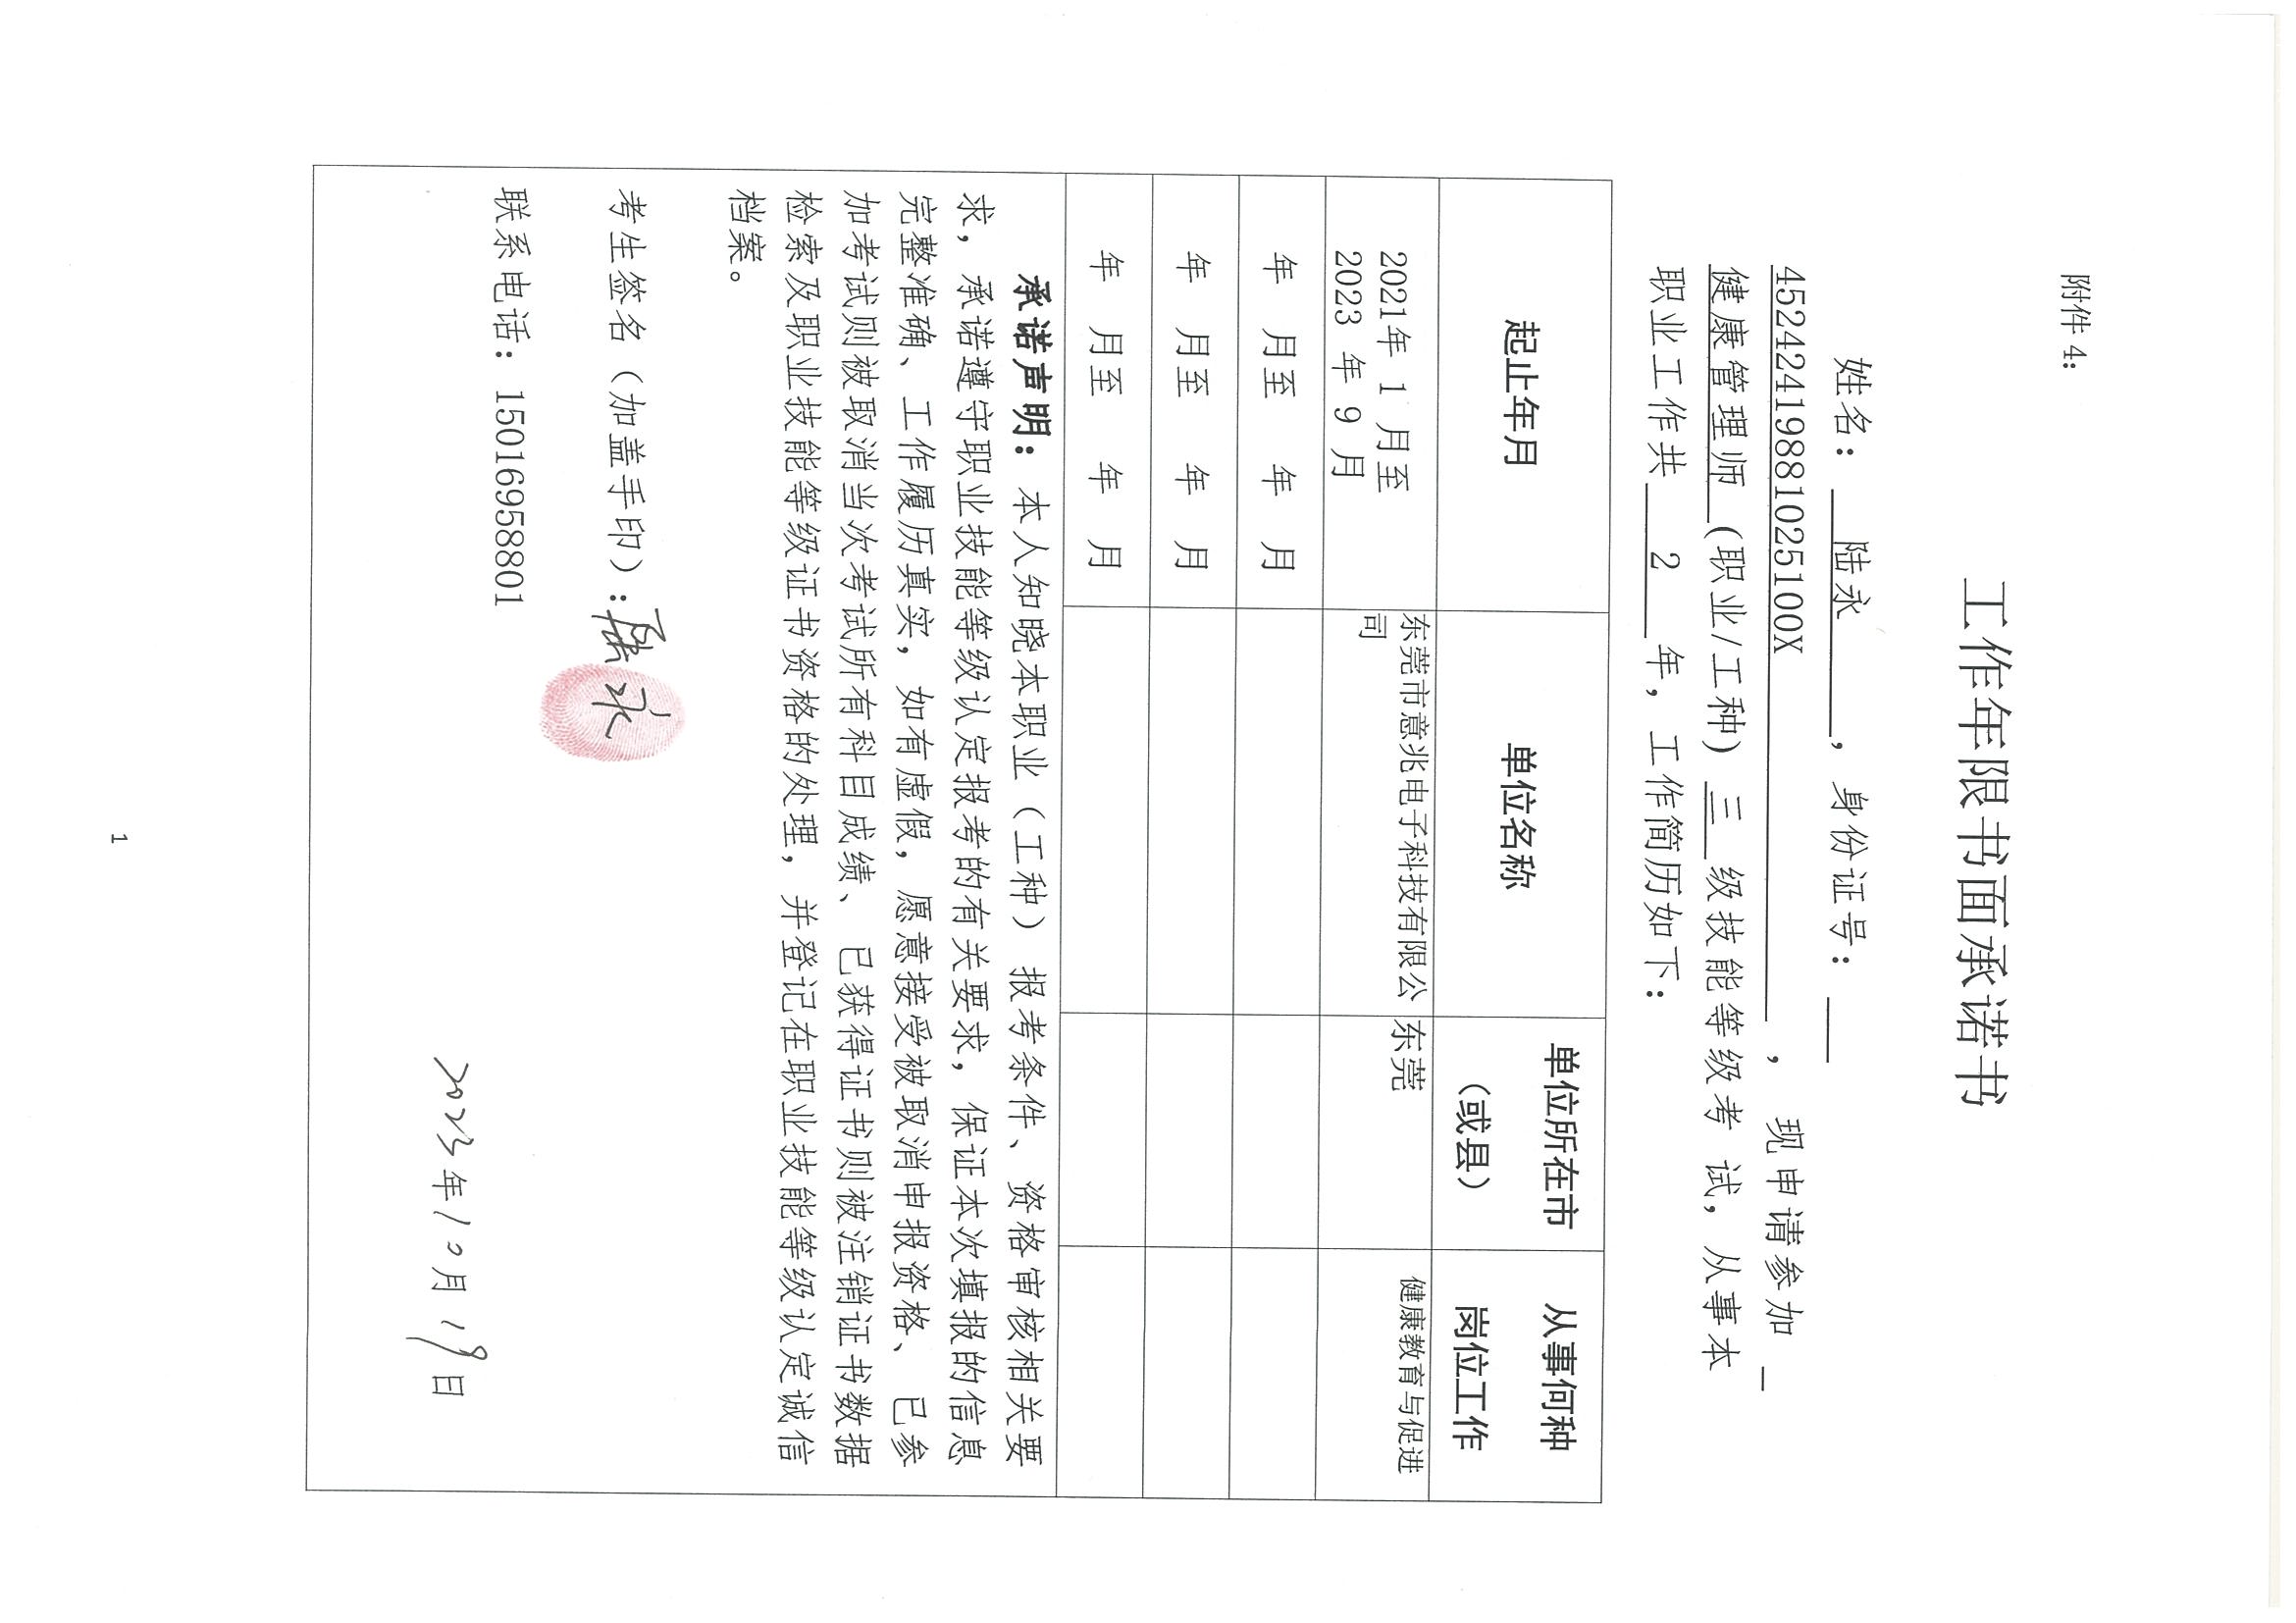 附件 4：
工作年限书面承诺书
姓名： 陆永 ，身份证号：
45242419881025100X ， 现申请参加
健康管理师 (职业/工种) 三 级技能等级考 试，从事本
职业工作共 2 年，工作简历如下：
起止年月 单位名称 单位所在市（或县） 从事何种岗位工作
2021年 1 月至 东莞市意兆电子科技有限公 东莞 健康教育与促进
2023 年 9 月 司
年 月至 年 月
年 月至 年 月
年 月至 年 月
承诺声明：本人知晓本职业（工种）报考条件、资格审核相关要
求，承诺遵守职业技能等级认定报考的有关要求，保证本次填报的信息
完整准确、工作履历真实，如有虚假，愿意接受被取消申报资格、已参
加考试则被取消当次考试所有科目成绩、已获得证书则被注销证书数据
检索及职业技能等级证书资格的处理，并登记在职业技能等级认定诚信
档案。
考生签名（加盖手印）： 永
联系电话：15016958801
2023年10月19日
1